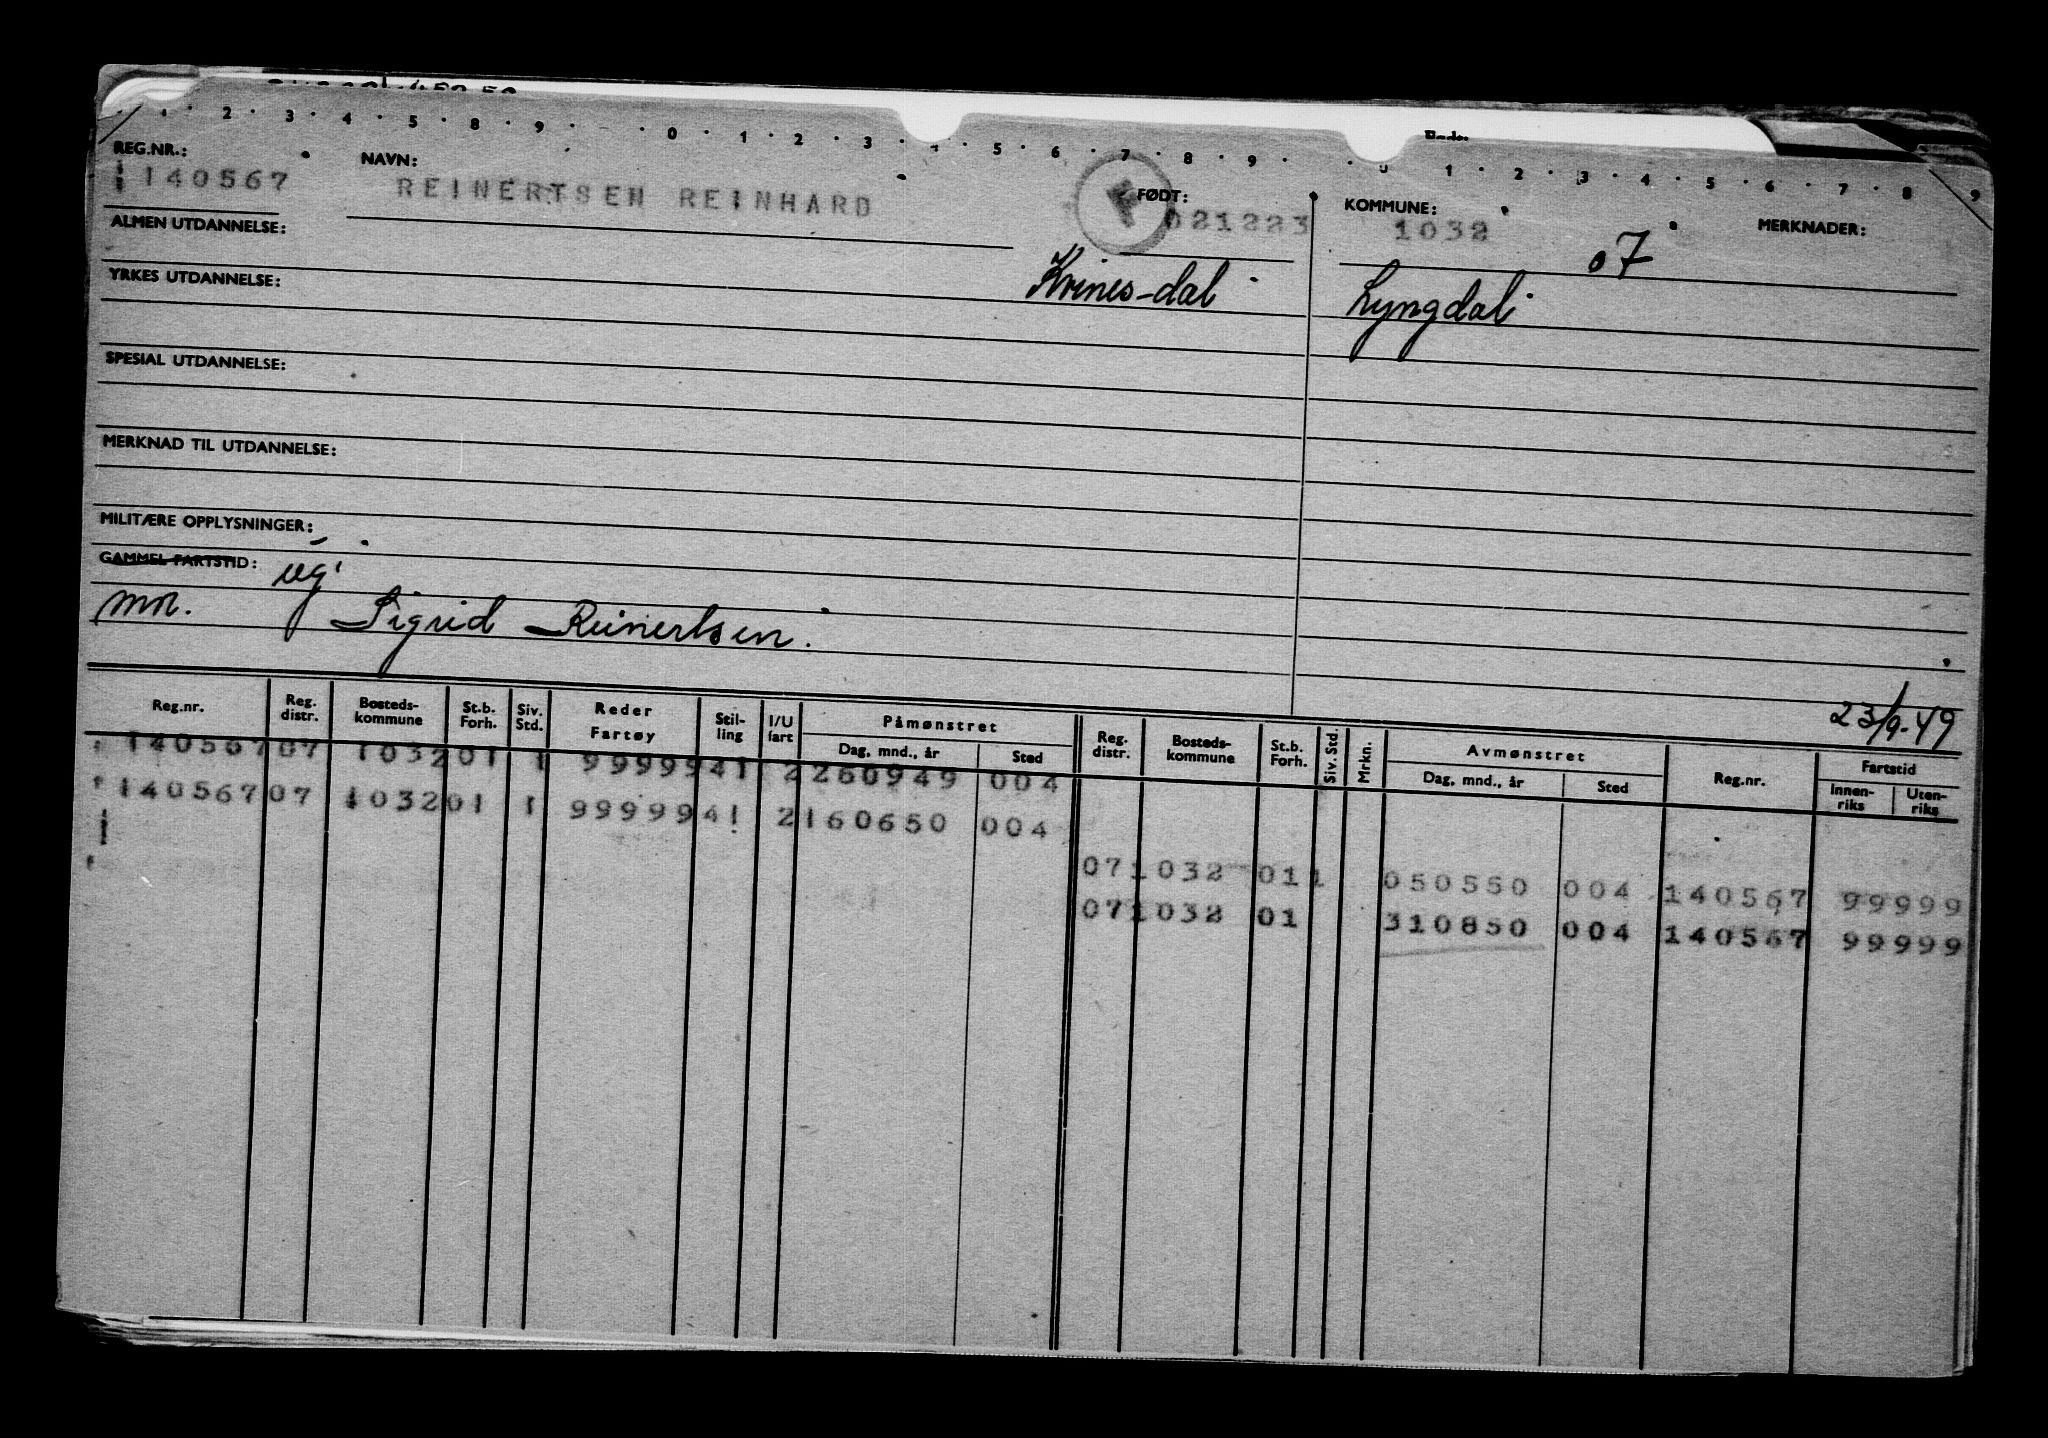 1 · 2 · 3 · 4 · 5 · 8 · 9 · · 0 · 1 · 2 · 3 · 4 · 5 · 6 · 7 · 8 · 9 · · 0 · 1 · 2 · 3 · 4 · 5 · 6 · 7 · 8 · 9
REG.NR.: NAVN: FØDT: KOMMUNE: MERKNADER:
140567 REINERTSEN REINHARD 021223 1032
07
ALMEN UTDANNELSE:
Kvines-dal Lyngdal
YRKES UTDANNELSE:
SPESIAL UTDANNELSE:
MERKNAD TIL UTDANNELSE:
MILITÆRE OPPLYSNINGER:
GAMMEL FARTSTID: ug
mor. Sigrid Reinertsen.
23/9-49
Reg.nr. Reg. distr. Bosteds-kommune St.b. Forh. Siv. Std. Reder Fartøy Stil-ling I/U fart Påmønstret Dag, mnd., år Sted Reg. distr. Bosteds-kommune St.b. Forh. Siv. Std. Mrkn. Avmønstret Dag, mnd., år Sted Reg.nr. Fartstid Innen-riks Uten-riks
140567 07 1032 01 1 99999 41 2 260949 004
140567 07 1032 01 1 99999 41 2 160650 004
07 1032 01 1 050550 004 140567 99999
07 1032 01 310850 004 140567 99999